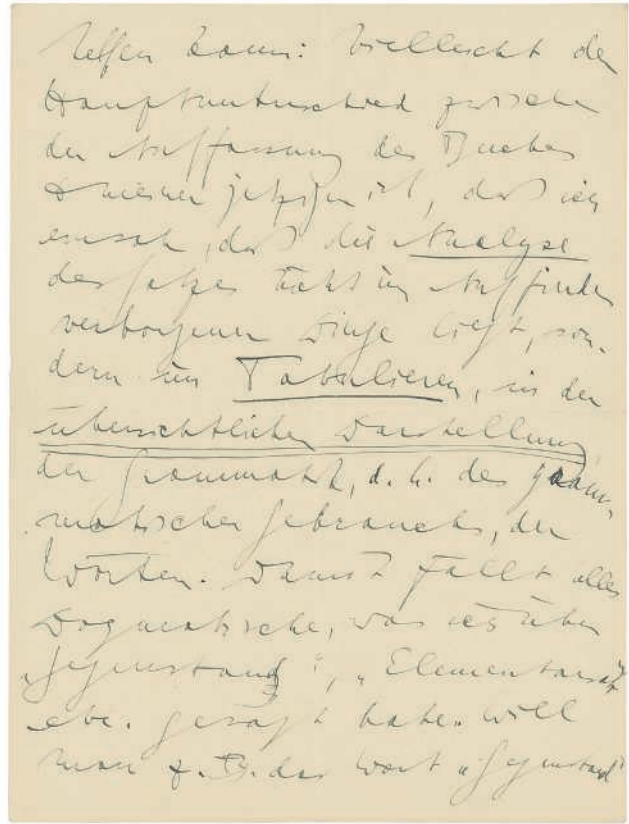 helfen kann: Vielleicht der
Hauptunterschied zwischen
der Auffassung des Buches
& meiner jetzigen ist, daß ich
einsah, daß die Analyse
des Satzes nicht im Auffinden
verborgener Dinge liegt, son-
dern im Tabulieren, in der
übersichtlichen Darstellung,
der Grammatik, d.h. des gram-
matischen Gebrauchs, der
Wörter. Damit fällt alles
Dogmatische, was ich über
„Gegenstand“, „Elementarsatz
etc. gesagt habe. Will
man z.B. das Wort „Gegenstand“